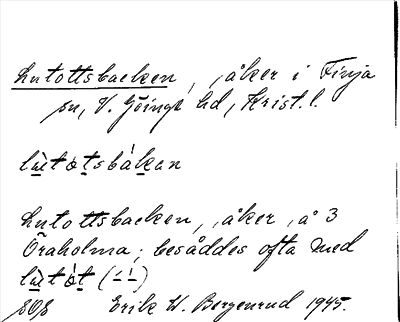 Lutottsbacken, , åker i Finja
sn, V. Göinge hd, Krist. l.
lu̱to̱tsbáḵan
Lutottsbacken, , åker, å 3
Öraholma; besåddes ofta med
lu̱tòṯ (–́–̀)
Erik W. Bergenrud 1945.